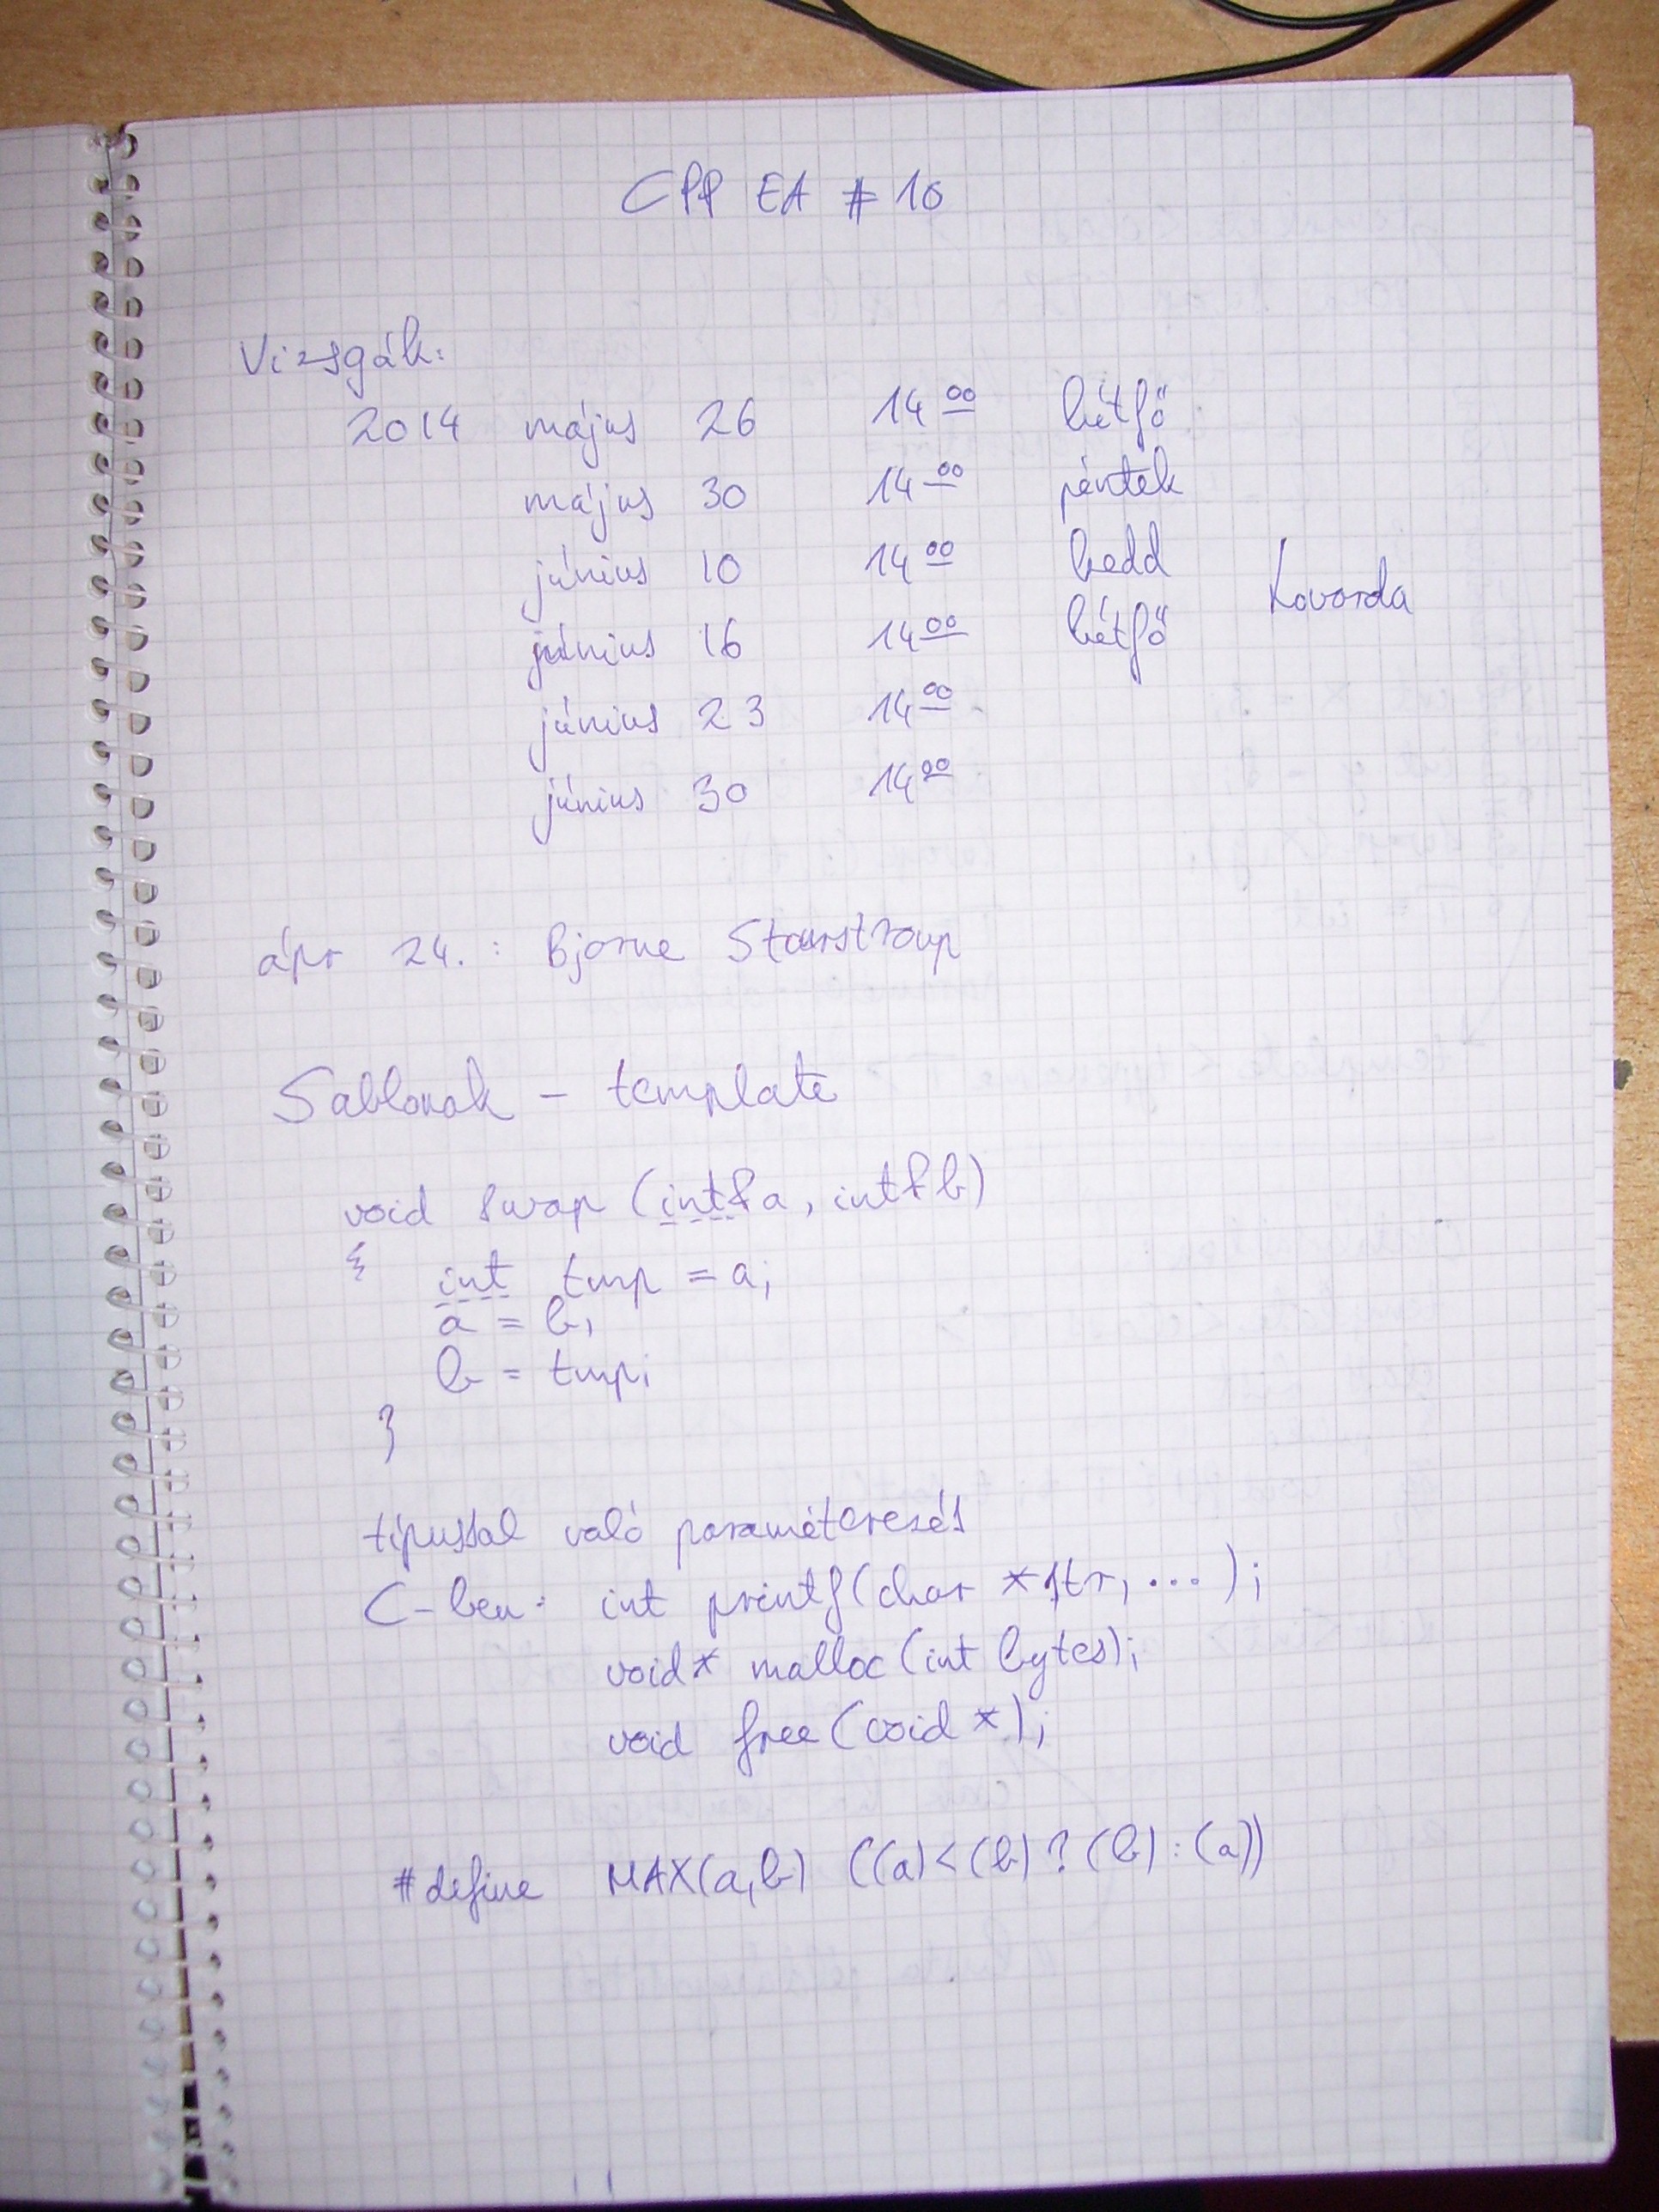 CPP EA # 10
Vizsgák:
2014 május 26 14 00 hétfő
május 30 14 00 péntek
június 10 14 00 kedd
Kovorda
június 16 14 00 hétfő
június 23 14 00
június 30 14 00
ápr 24. : Bjorne Staurstroup
Sablonok - template
void swap (int& a, int& b)
{ int tmp = a;
a = b;
b = tmp;
}
típussal való paraméterezés
C-ben: int printf(char *str, ...);
void* malloc (int bytes);
void free (void *);
#define MAX(a,b) ((a)<(b)?(b):(a))